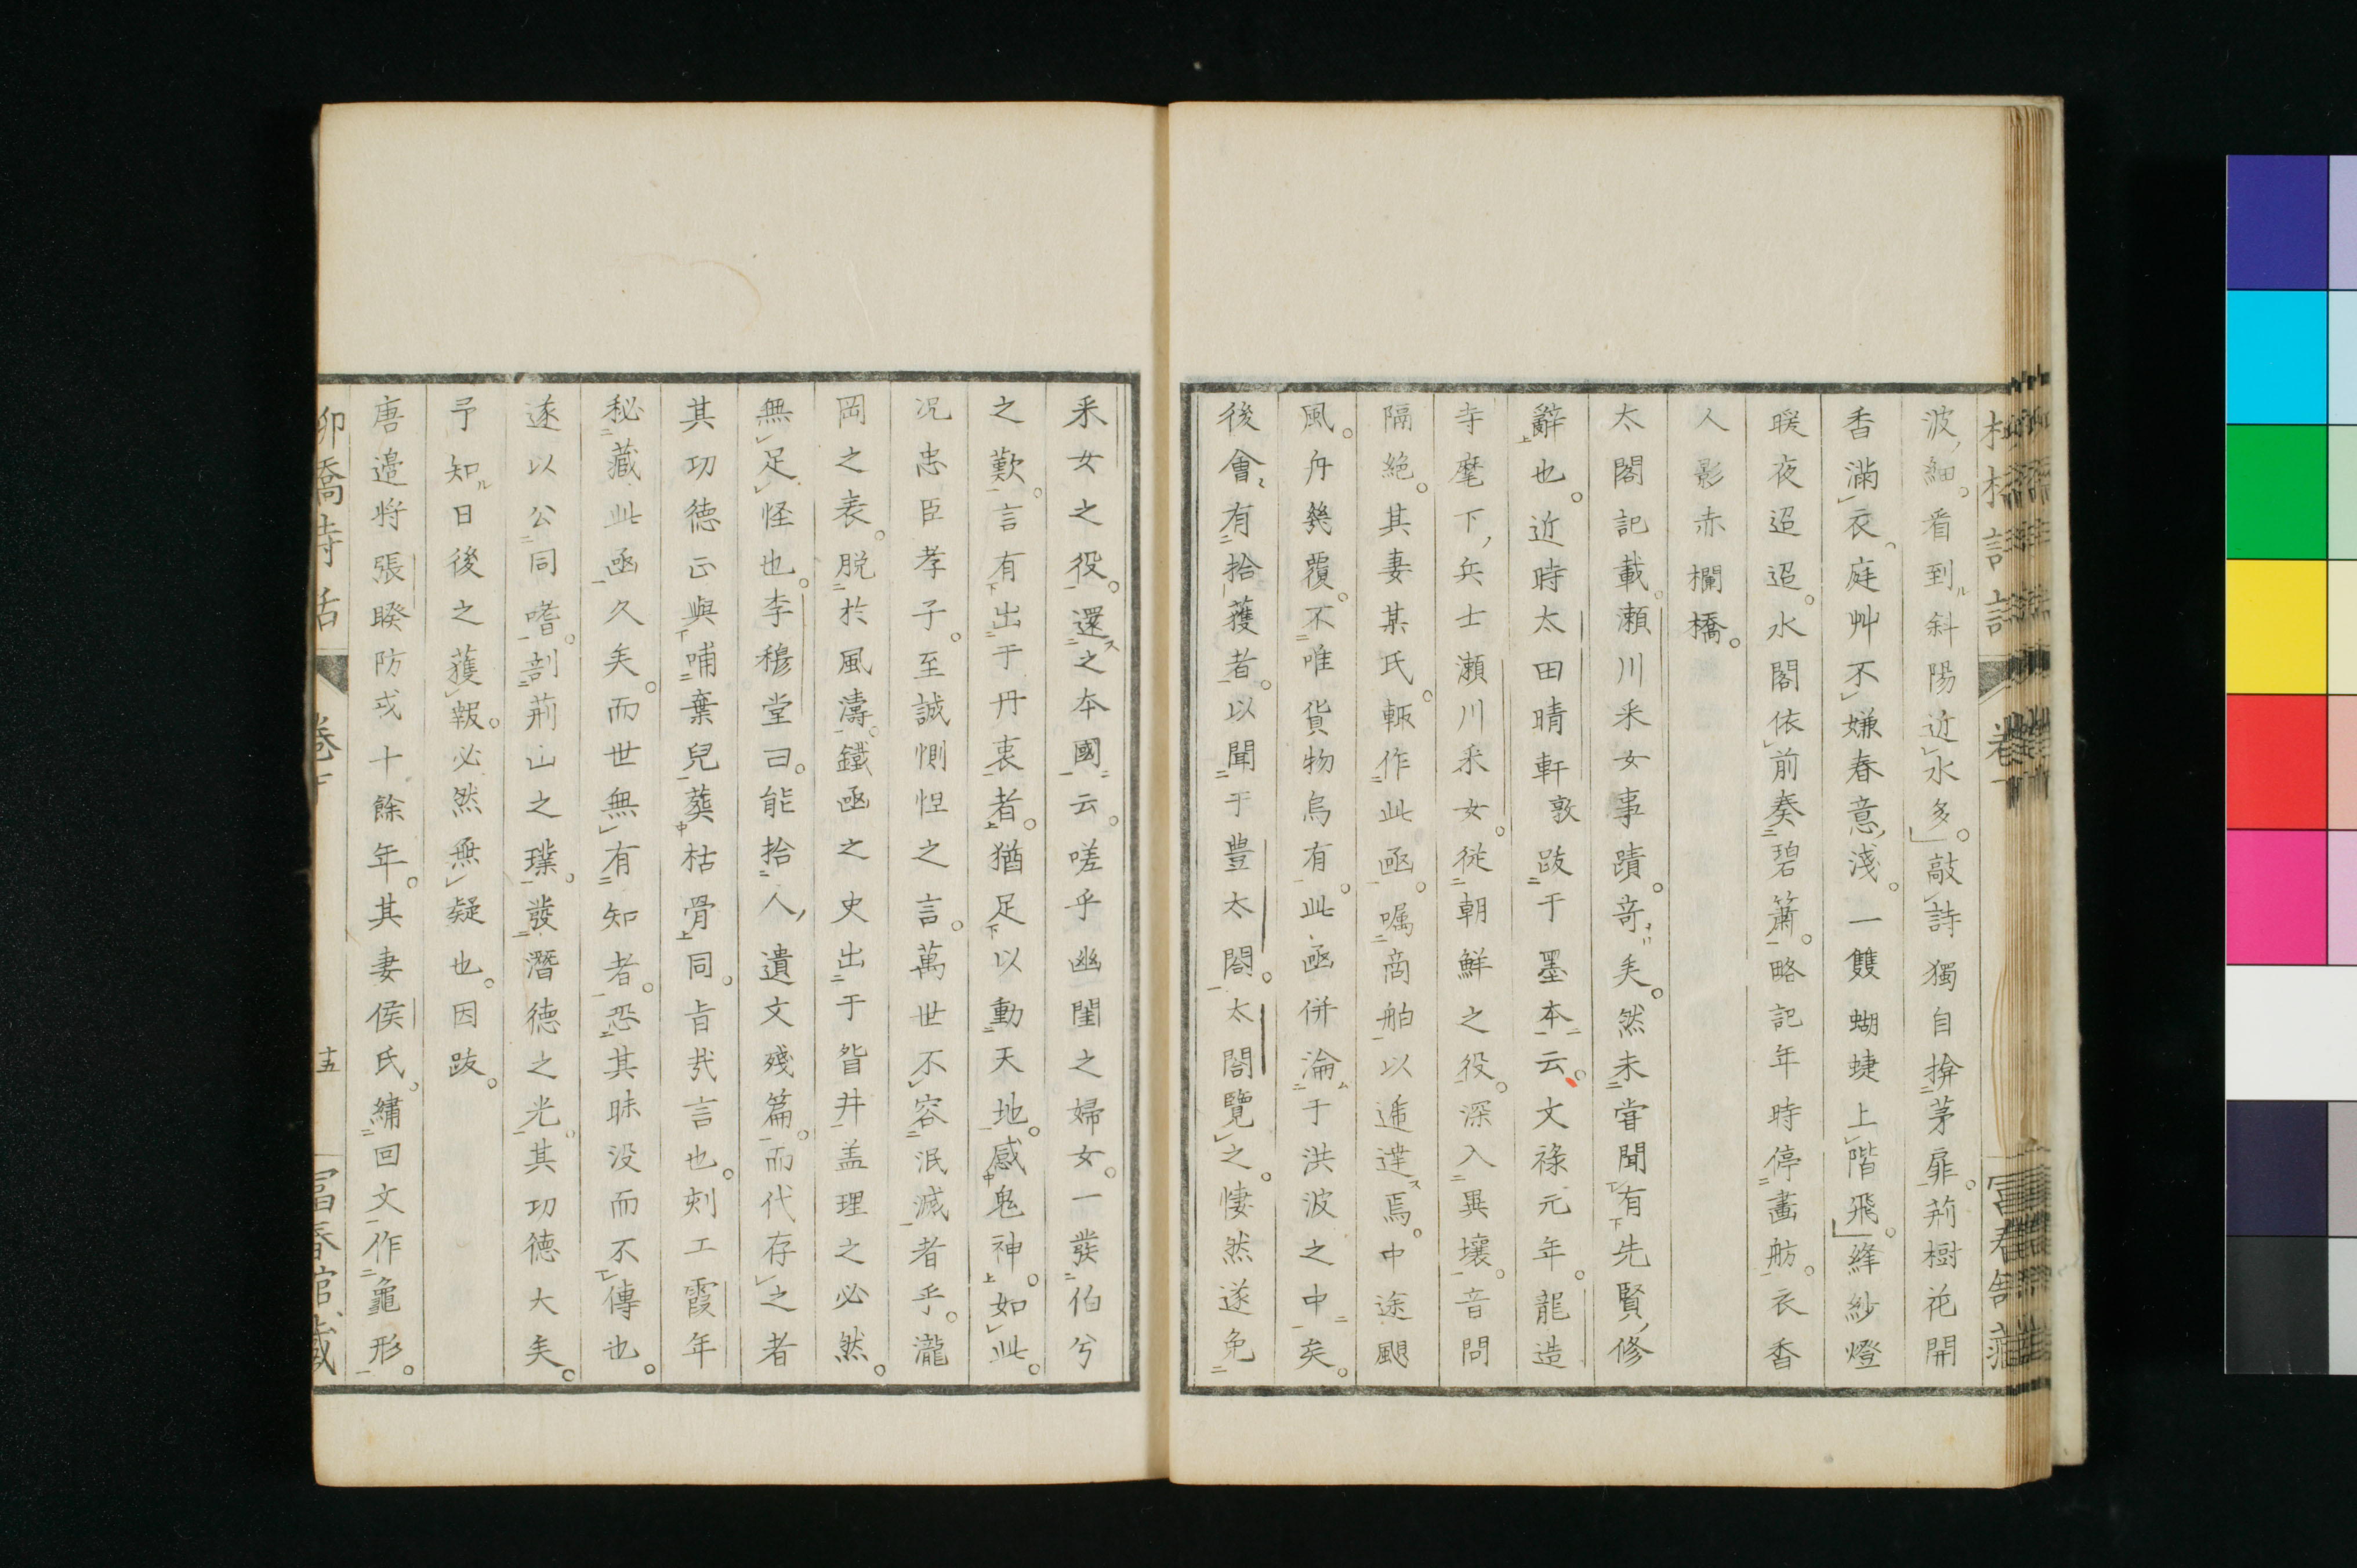 波細。看到斜陽近水多。敲詩獨自揜茅扉。荊樹花開
香滿衣。庭艸不嫌春意淺。一雙蝴蜨上階飛。絳紗燈
暖夜迢迢。水閣依前奏碧簫。略記年時停畫舫。衣香
人影赤欄橋。
太閤記載。瀨川釆女事蹟。竒矣。然未甞聞有先賢修
辭也。近時太田晴軒敦跋于墨本云。文祿元年。龍造
寺麾下兵士瀨川釆女。從朝鮮之役。深入異壤。音問
隔絶。其妻某氏。輒作此凾。嘱商舶以逓達焉。中途颶
風。舟幾覆。不唯貨物烏有。此凾併淪于洪波之中矣。
後會有拾獲者。以聞于豊太閤。太閤覽之。悽然遂免
釆女之役。還之本國云。嗟乎幽閨之婦女。一發伯兮
之歎。言有出于丹衷者。猶足以動天地。感鬼神。如此。
况忠臣孝子。至誠惻怛之言。萬世不容泯滅者乎。瀧
岡之表。脱於風濤。鐵凾之史出于眢井。盖理之必然。
無足怪也。李穆堂曰。能拾人遺文殘篇。而代存之者
其功德正與哺棄兒葬枯骨同。旨哉言也。刾工霞年
秘藏此凾久矣。而世無有知者。恐其昧没而不傳也。
遂以公同嗜。剖荊山之璞。發潛德之光。其功德大矣。
予知日後之獲報。必然無疑也。因跋。
唐邊將張睽防戎十餘年。其妻侯氏。繡回文作龜形。
柳橋詩話 卷下 十五 富春館藏